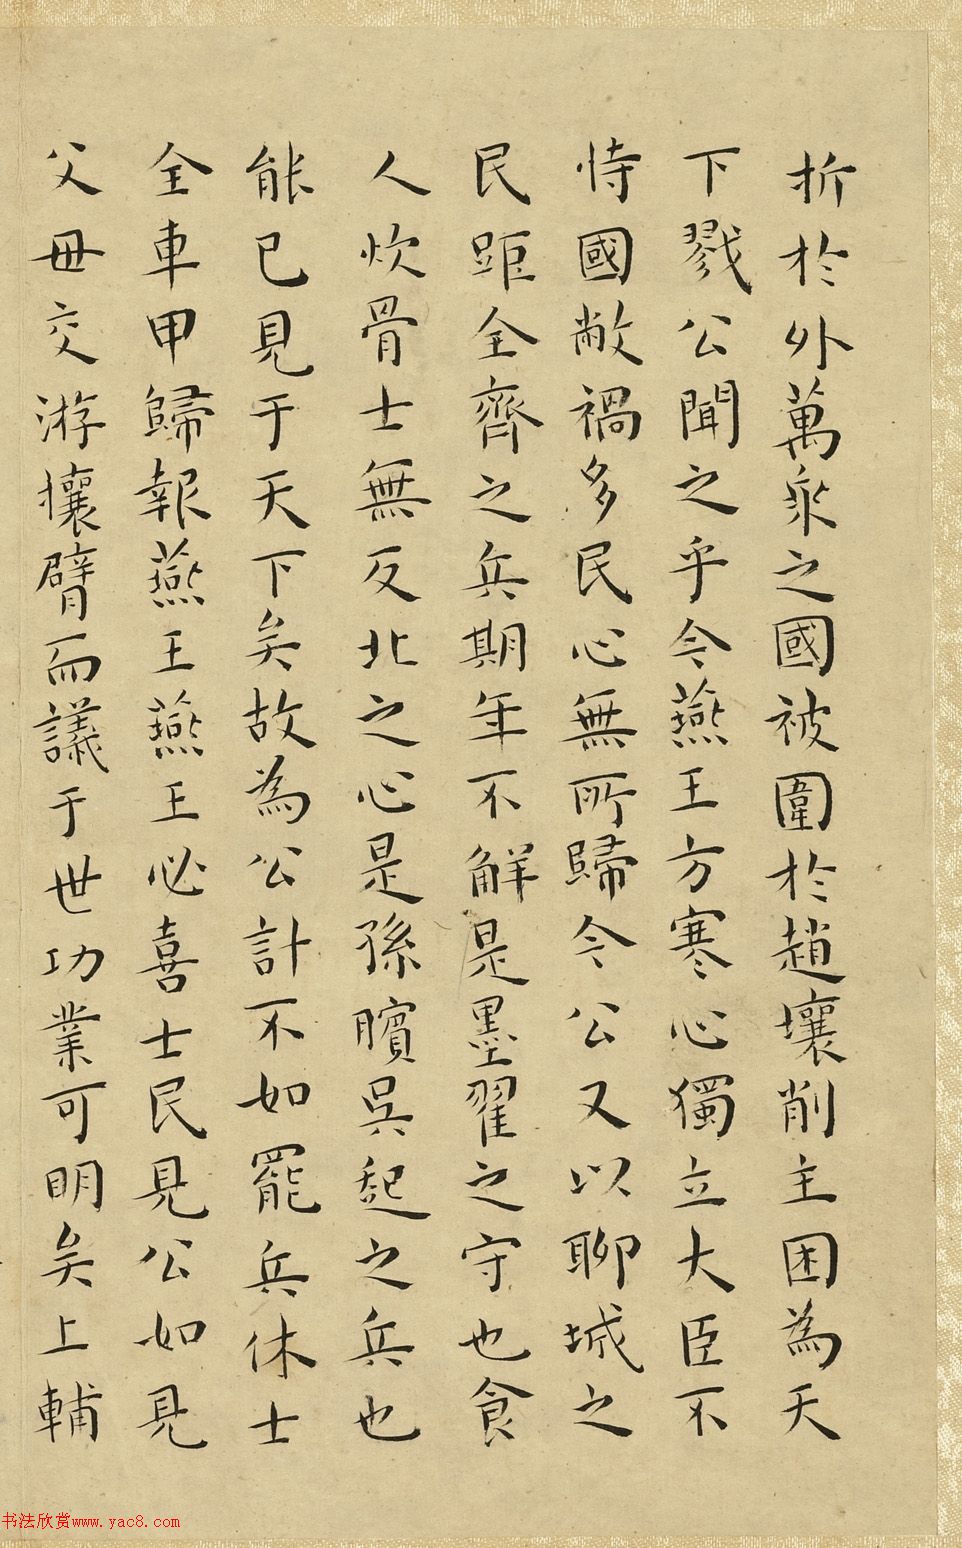 折於外萬乘之國被圍於趙壤削主困為天
下戮公聞之乎今燕王方寒心獨立大臣不
恃國敝禍多民心無所歸今公又以聊城之
民距全齊之兵期年不解是墨翟之守也食
人炊骨士無反北之心是孫臏吳起之兵也
能已見于天下矣故為公計不如罷兵休士
全車甲歸報燕王燕王必喜士民見公如見
父母交游攘臂而議于世功業可明矣上輔
书法欣赏www.yac8.com